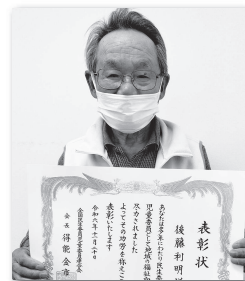 表彰状
後藤利明
あなたは多年にわたり民生委
児童委員として地域の福祉向
尽力されました
よってその功労を称えここ
表彰いたします
令和六年十一月二十日
全国民生委員児童委員連合会
会長 得能金市